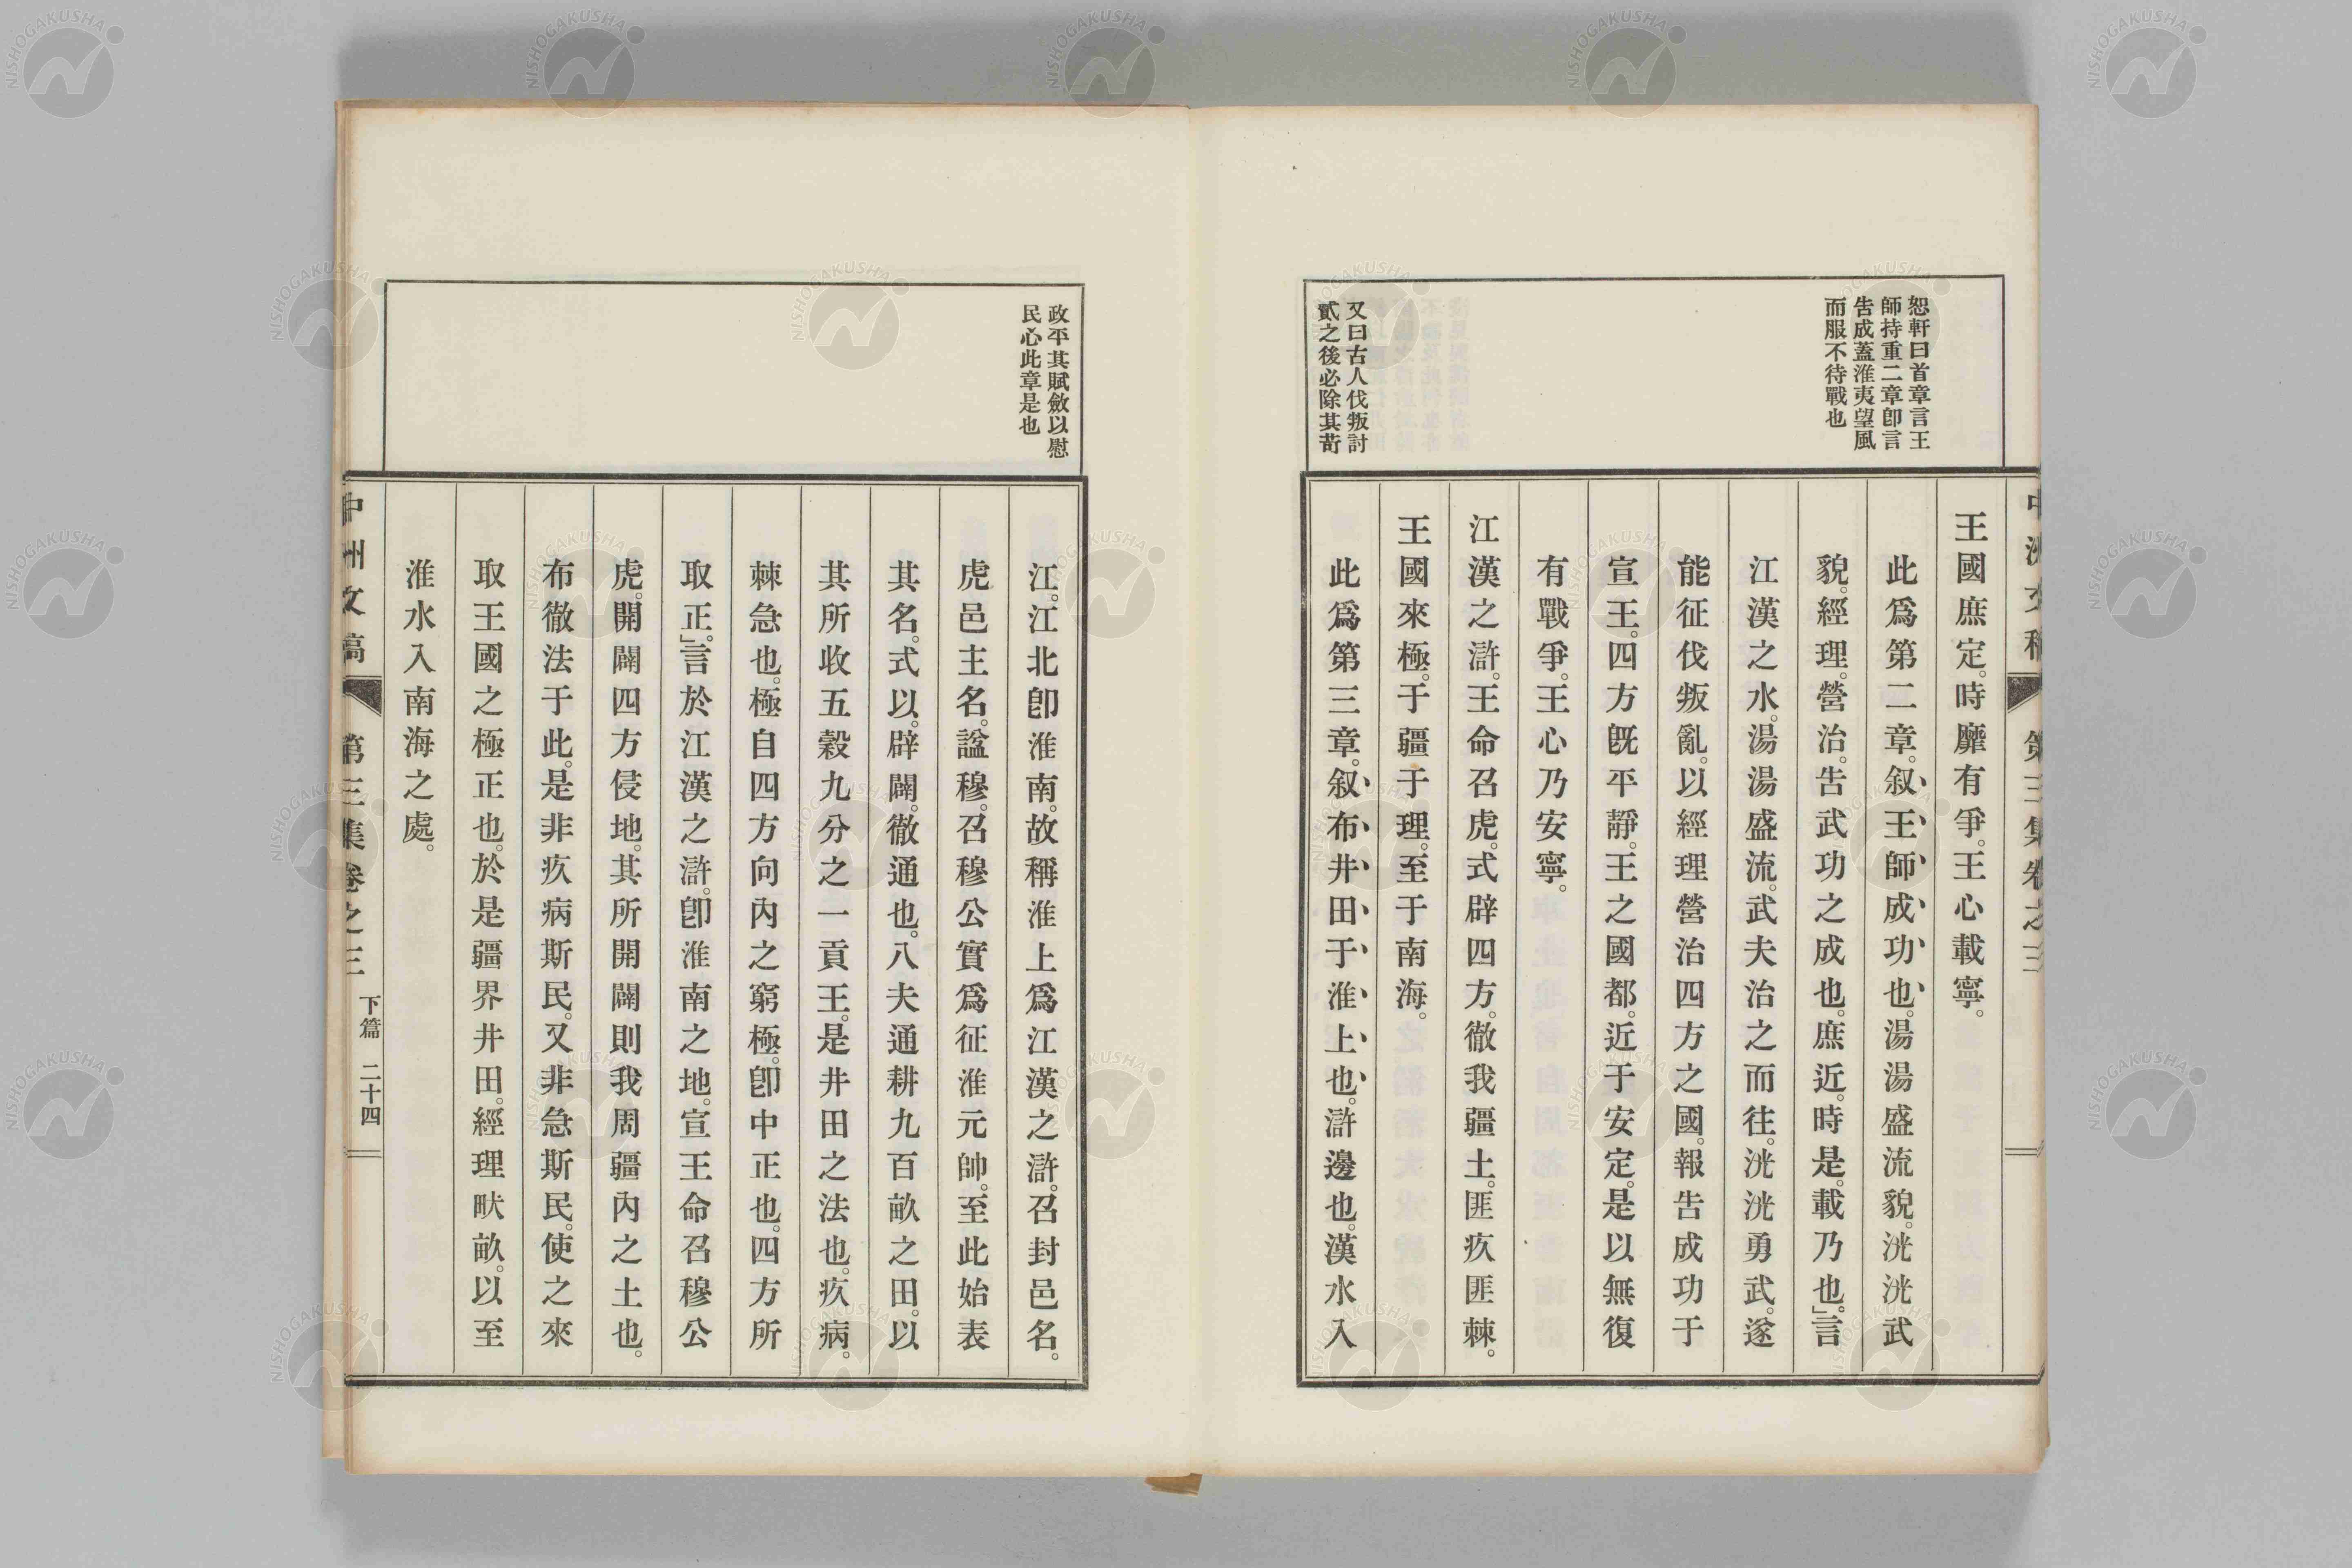 恕軒曰首章言王
師持重二章卽言
告成蓋淮夷望風
而服不待戰也
又曰古人伐叛討
貳之後必除其苛
王國庶定。時靡有爭。王心載寧。
此爲第二章。叙王師成功也。湯湯盛流貌。洸洸武
貌。經理。營治。告武功之成也。庶近。時是。載乃也。」言
江漢之水。湯湯盛流。武夫治之而往。洸洸勇武。遂
能征伐叛亂。以經理營治四方之國。報告成功于
宣王。四方旣平靜。王之國都。近于安定。是以無復
有戰爭。王心乃安寧。
江漢之滸。王命召虎。式辟四方。徹我疆土。匪疚匪棘。
王國來極。于疆于理。至于南海。
此爲第三章。叙布井田于淮上也。滸邊也。漢水入
中洲文稿 第三集卷之三
政平其賦斂以慰
民心此章是也
江。江北卽淮南。故稱淮上爲江漢之滸。召封邑名。
虎。邑主名。諡穆。召穆公實爲征淮元帥。至此始表
其名。式以。辟闢。徹通也。八夫通耕九百畝之田。以
其所收五穀九分之一貢王。是井田之法也。疚病。
棘急也。極自四方向內之窮極。卽中正也。四方所
取正。」言於江漢之滸。卽淮南之地。宣王命召穆公
虎。開闢四方侵地。其所開闢則我周疆內之土也。
布徹法于此。是非疚病斯民。又非急斯民。使之來
取王國之極正也。於是疆界井田。經理畎畝。以至
淮水入南海之處。
中洲文稿 第三集卷之三 下篇 二十四
NISHOGAKUSHA